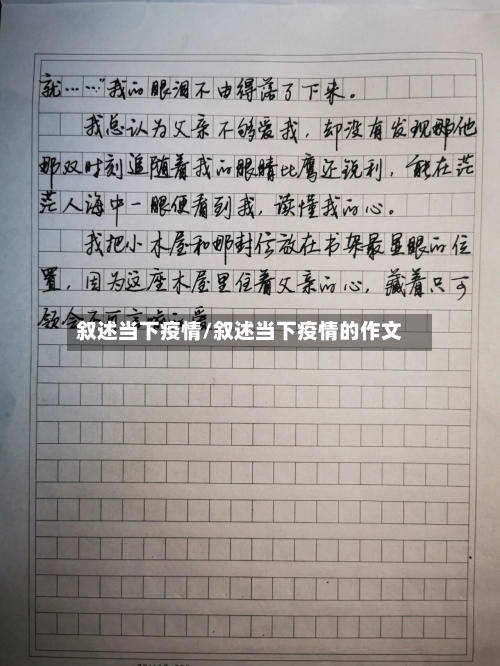 就……”我的眼泪不由得落了下来。
我总认为父亲不够爱我，却没有发现那他
那双时刻追随着我的眼睛比鹰还锐利，能在茫
茫人海中一眼便看到我，读懂我的心。
我把小木屋和那封信放在书架最显眼的位
置，因为这座木屋里住着父亲的心，藏着只可
领会不可言
叙述当下疫情/叙述当下疫情的作文